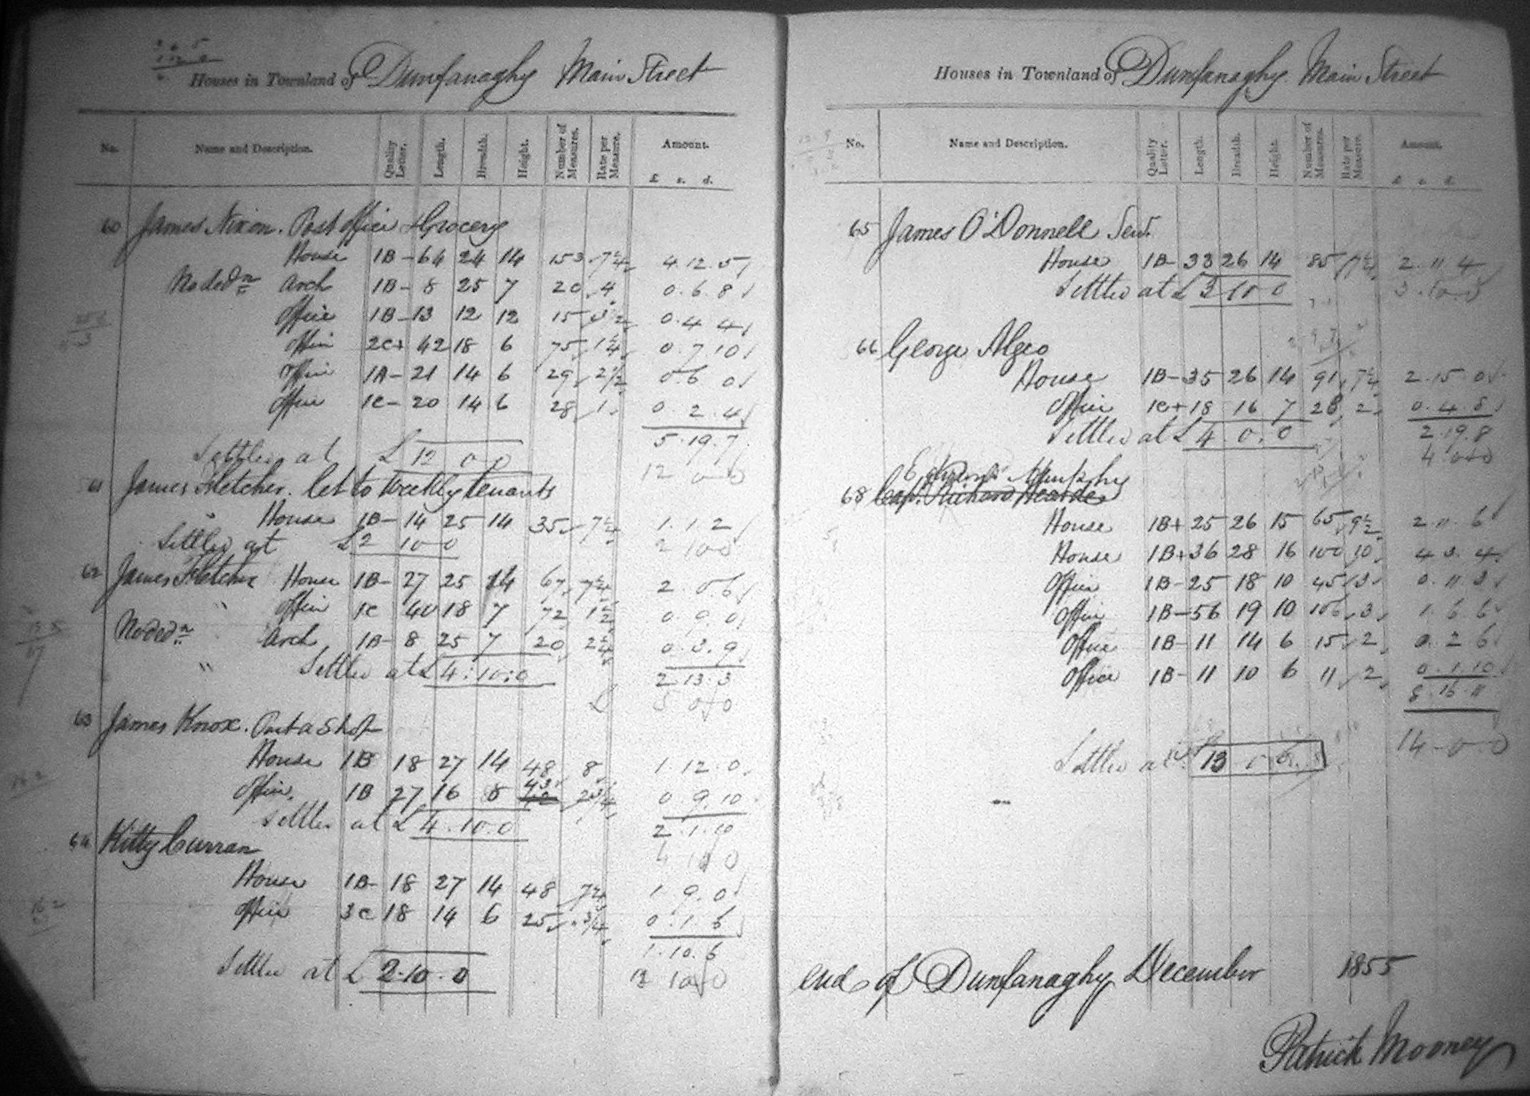 Houses in Townland of Dunfanaghy Main Street
No. Name and Description. Quality Letter. Length. Breadth. Height. Number of Measures. Rate per Measure. Amount.
£ s. d.
60 James Nixon. Post office & Grocery
House 1B- 64 24 14 153 7¼ 4.12.5
No dedn Arch 1B- 8 25 7 20 4 0.6.8
Office 1B- 13 12 12 15 3½ 0.4.4
Office 2C+ 42 18 6 75 1¼ 0.7.10
Office 1A- 21 14 6 29 2½ 0.6.0
Office 1C- 20 14 6 28 1 0.2.4
5.19.7
Settled at £12 0-0 12 0-0
61 James Fletcher. let to weekly tenants
House 1B- 14 25 14 35 7¼ 1.1.2
Settled at £2 10-0 2 10-0
62 James Fletcher House 1B- 27 25 14 67 7¼ 2.0.6
" Office 1C 40 18 7 72 1½ 0.9.0
No dedn Arch 1B- 8 25 7 20 2¼ 0.3.9
" Settled at £4.10.0 2.13.3
5 0-0
63 James Knox. Part a Shop
House 1B 18 27 14 48 8 1.12.0
Office 1B 27 16 8 43 2¾ 0.9.10
Settled at £4.10.0 2.1.10
4 10 0
64 Kitty Curran
House 1B- 18 27 14 48 7¼ 1.9.0
Office 3C 18 14 6 25 ¾ 0.1.6
1.10.6
Settled at £2.10.0 10-0
Houses in Townland of Dunfanaghy Main Street
No. Name and Description. Quality Letter. Length. Breadth. Height. Number of Measures. Rate per Measure. Amount.
£ s. d.
65 James O'Donnell Senr.
House 1B- 33 26 14 85 7¼ 2.11.4
Settled at £3 10 0 3.10.0
66 George Algeo
House 1B- 35 26 14 91 7¼ 2.15.0
Office 1C+ 18 16 7 28 2 0.4.8
Settled at £4.0.0 2.19.8
4 0-0
68 Capt. Richard Hearde
House 1B+ 25 26 15 65 9½ 2.11.6
House 1B+ 36 28 16 100 10 4.3.4
Office 1B- 25 18 10 45 3 0.11.3
Office 1B- 56 19 10 106 3 1.6.6
Office 1B- 11 14 6 15 2 0.2.6
Office 1B- 11 10 6 11 2 0.1.10
8.16.11
Settled at £13 14-0-0
end of Dunfanaghy December 1855
Patrick Mooney